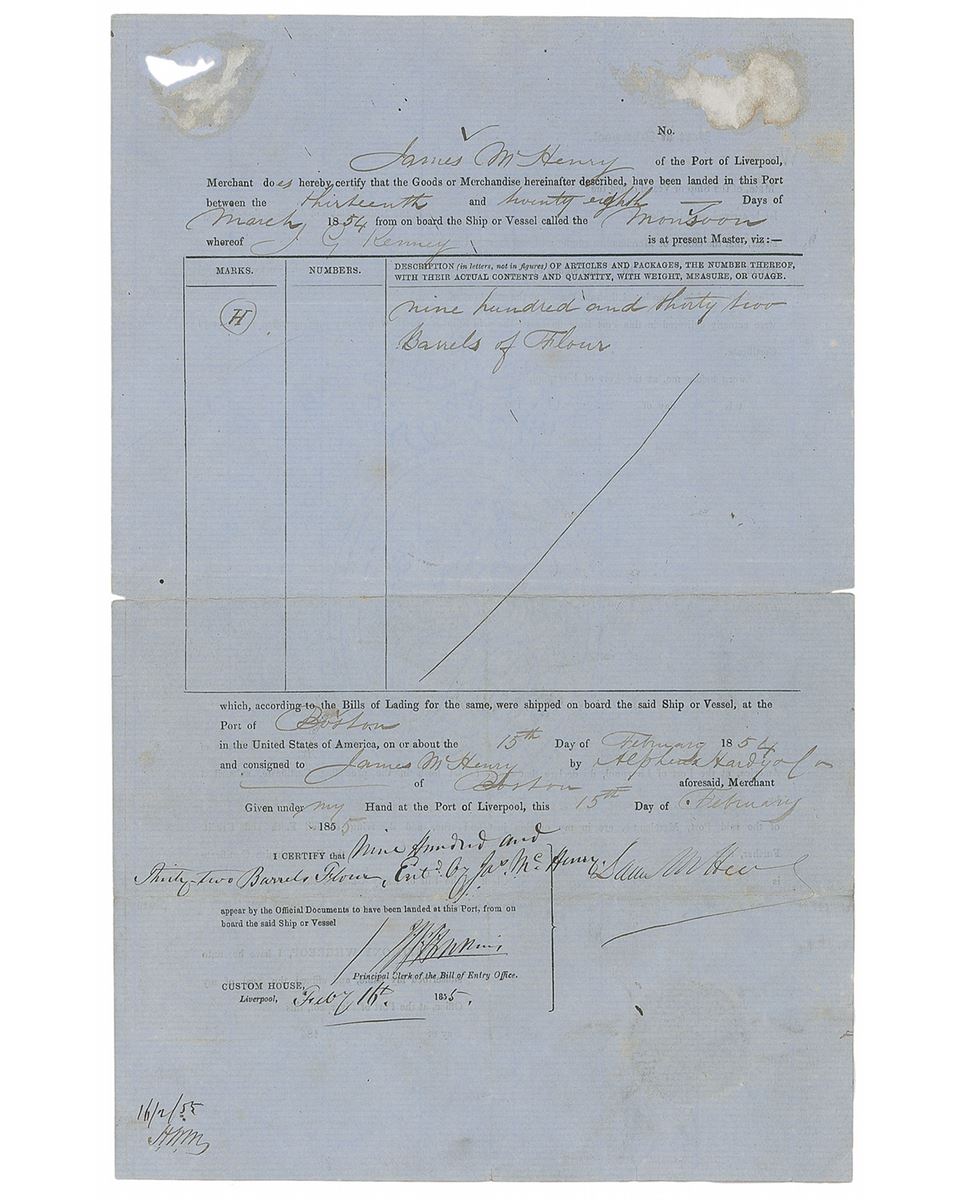 No.
James McHenry of the Port of Liverpool,
Merchant does hereby certify that the Goods or Merchandise hereinafter described, have been landed in this Port
between the thirteenth and twenty eighth — Days of
March 1854 from on board the Ship or Vessel called the Monsoon
whereof J. G Kenney is at present Master, viz :—
MARKS. NUMBERS. DESCRIPTION (in letters, not in figures) OF ARTICLES AND PACKAGES, THE NUMBER THEREOF,
WITH THEIR ACTUAL CONTENTS AND QUANTITY, WITH WEIGHT, MEASURE, OR GUAGE.
H nine hundred and thirty two
Barrels of Flour
which, according to the Bills of Lading for the same, were shipped on board the said Ship or Vessel, at the
Port of Boston
in the United States of America, on or about the 15th Day of February 1854
and consigned to James McHenry by Alpheus Hardy & Co
of Boston aforesaid, Merchant
Given under my Hand at the Port of Liverpool, this 15th Day of February
1855
I CERTIFY that Nine Hundred and
Thirty-two Barrels Flour, Entd. by Jas. McHenry
appear by the Official Documents to have been landed at this Port, from on
board the said Ship or Vessel
Principal Clerk of the Bill of Entry Office.
CUSTOM HOUSE,
Liverpool, Feby 16t. 1855.
16/2/55